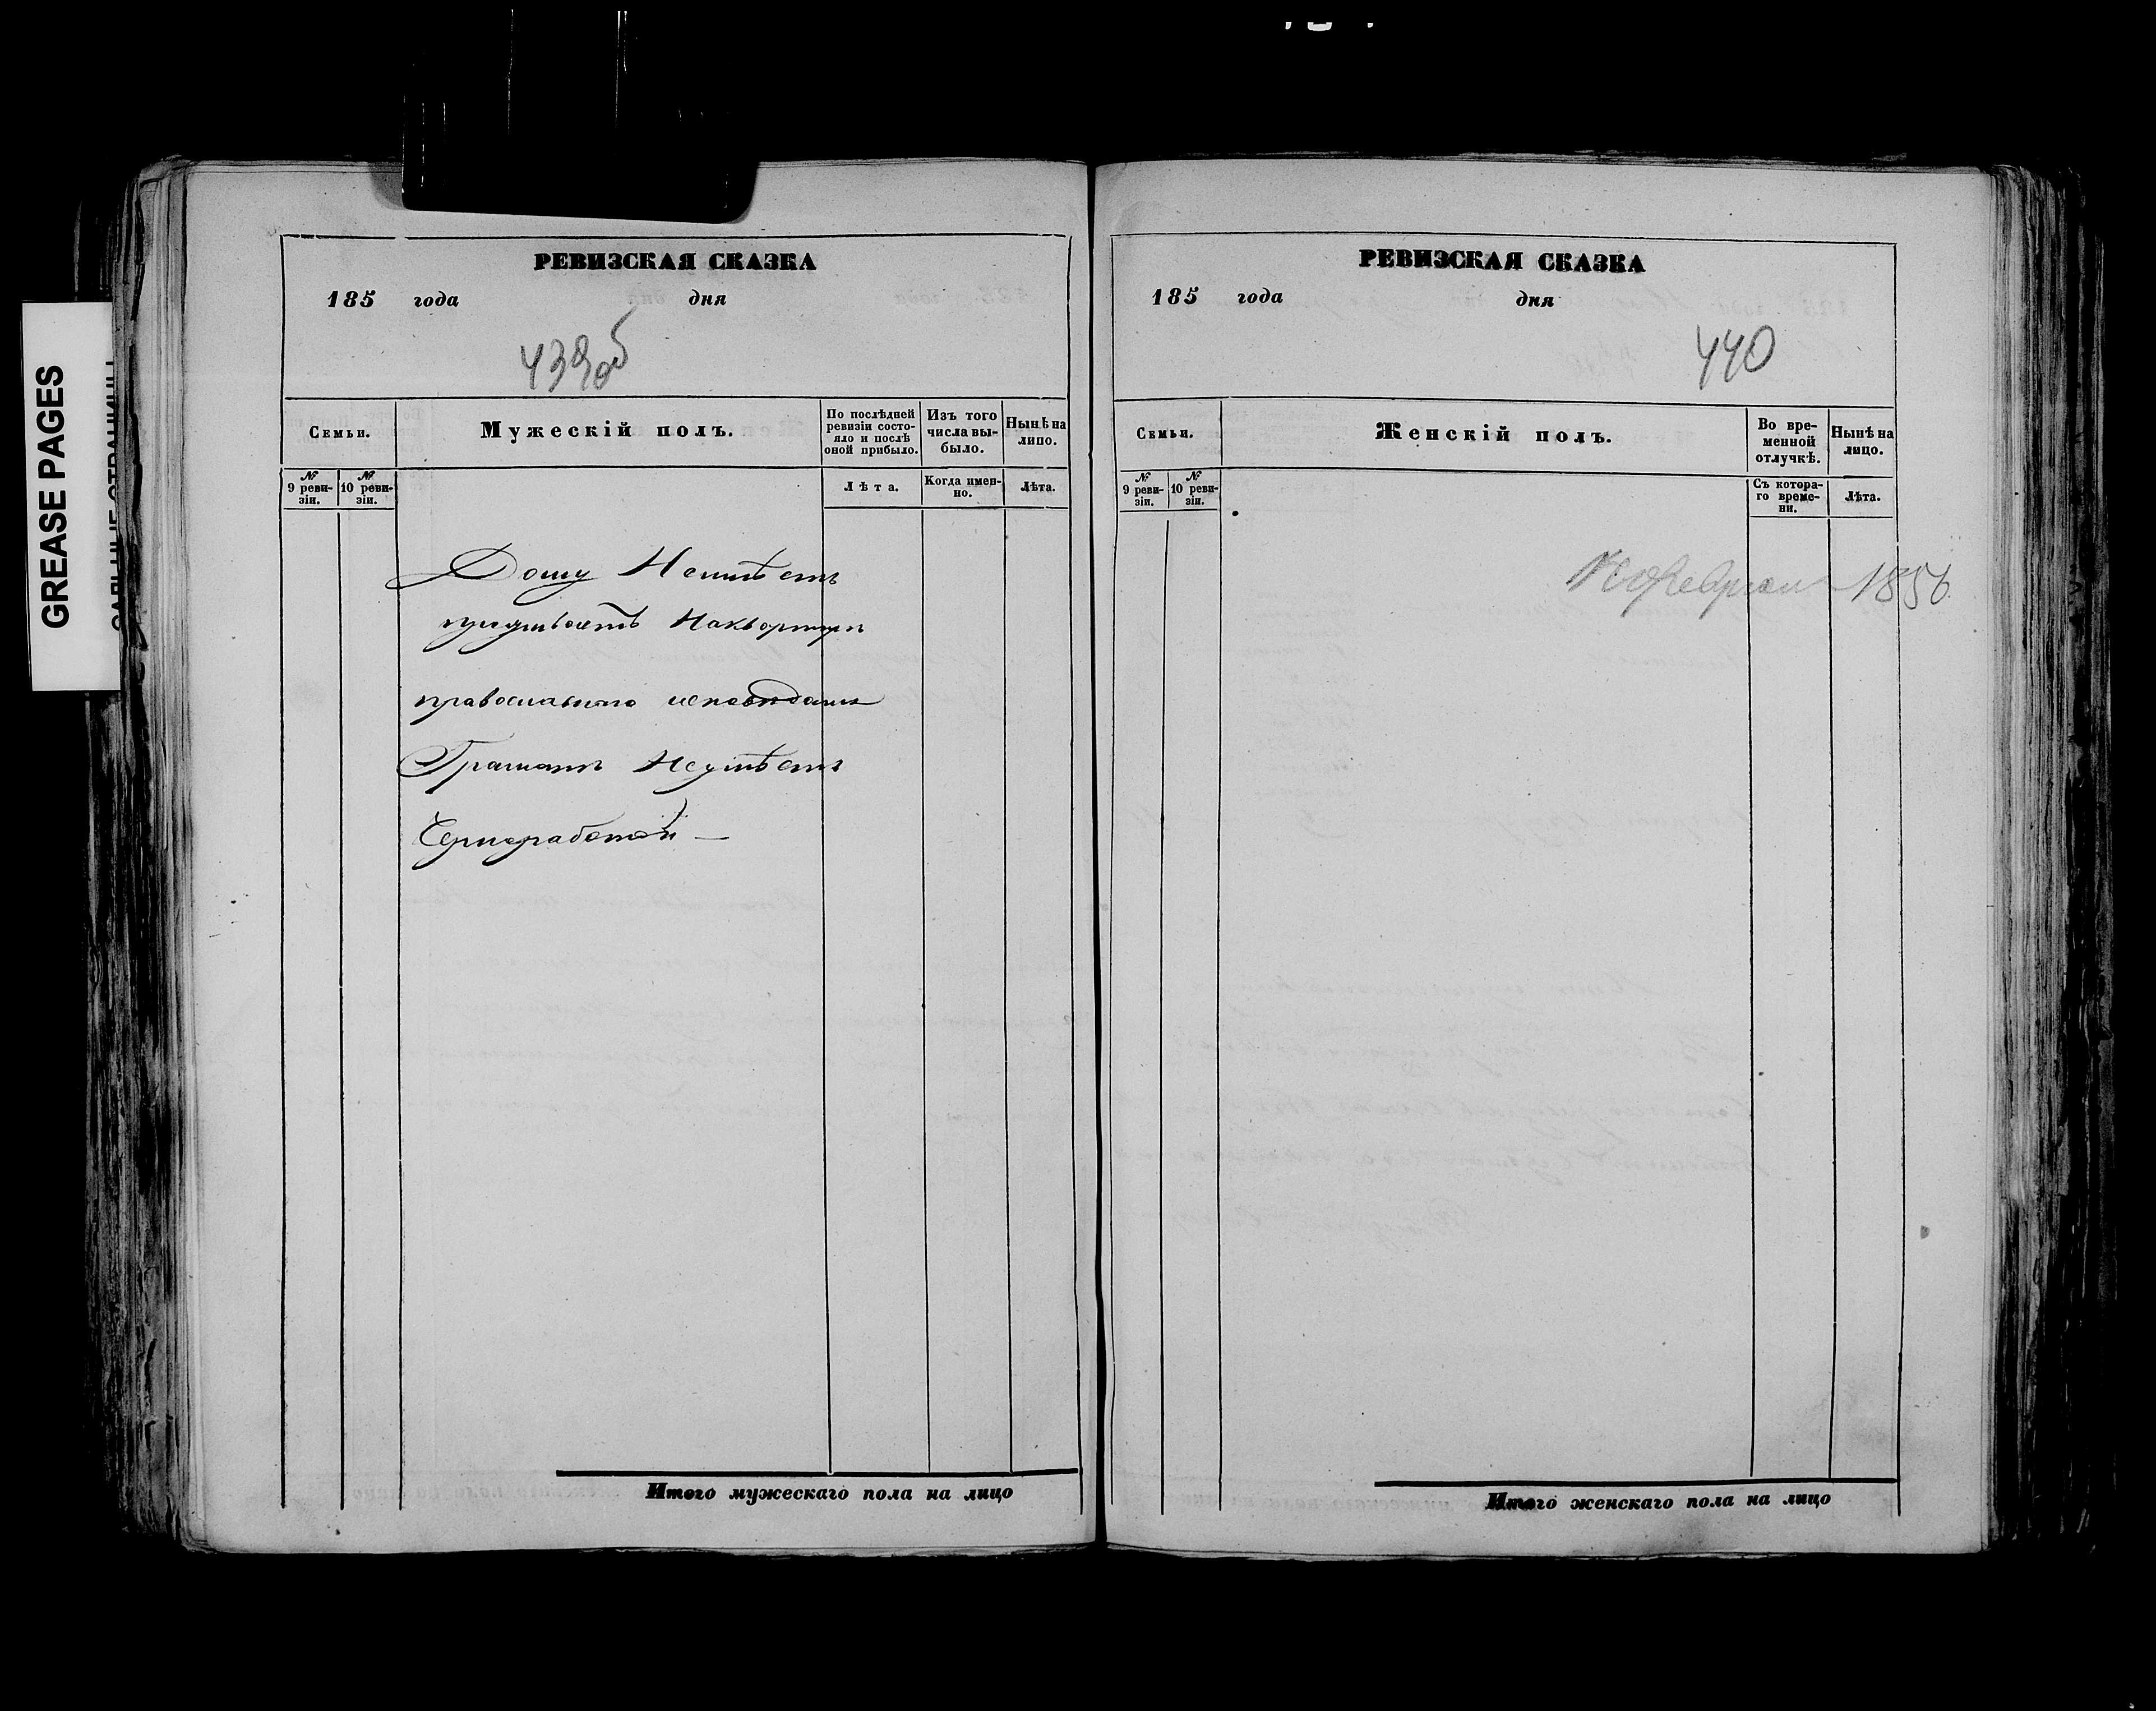 GREASE PAGES
РЕВИЗСКАЯ СКАЗКА
185 года дня
439об
Семьи.
Мужескій полъ.
По послѣдней ревизіи состояло и послѣ оной прибыло.
Изъ того числа выбыло.
Нынѣ на лицо.
№ 9 ревизіи.
№ 10 ревизіи.
Лѣта.
Когда именно.
Лѣта.
Дому Неимѣетъ
проживаетъ Наквартирѣ
православнаго исповѣданія
Грамотѣ Неумѣетъ
Чернорабочій —
Итого мужескаго пола на лицо
РЕВИЗСКАЯ СКАЗКА
185 года дня
440
Семьи.
Женскій полъ.
Во временной отлучкѣ.
Нынѣ на лицо.
№ 9 ревизіи.
№ 10 ревизіи.
Съ котораго времени.
Лѣта.
февраля 1858
Итого женскаго пола на лицо